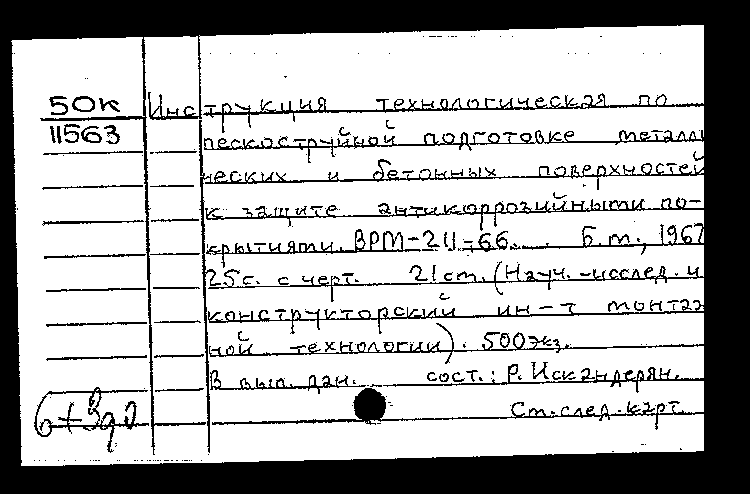 50к Инструкция технологическая по
11563 пескоструйной подготовке металли
ческих и бетонных поверхностей
к защите антикоррозийными по-
крытиями. ВРМ-211-66. Б.м., 1967
25с. с черт. 21 ст. (Науч.-исслед. и
конструкторский ин-т монтаж
ной технологии). 500 экз.
В вып. дан. сост.: Р. Искандерян.
Ст. след. карт